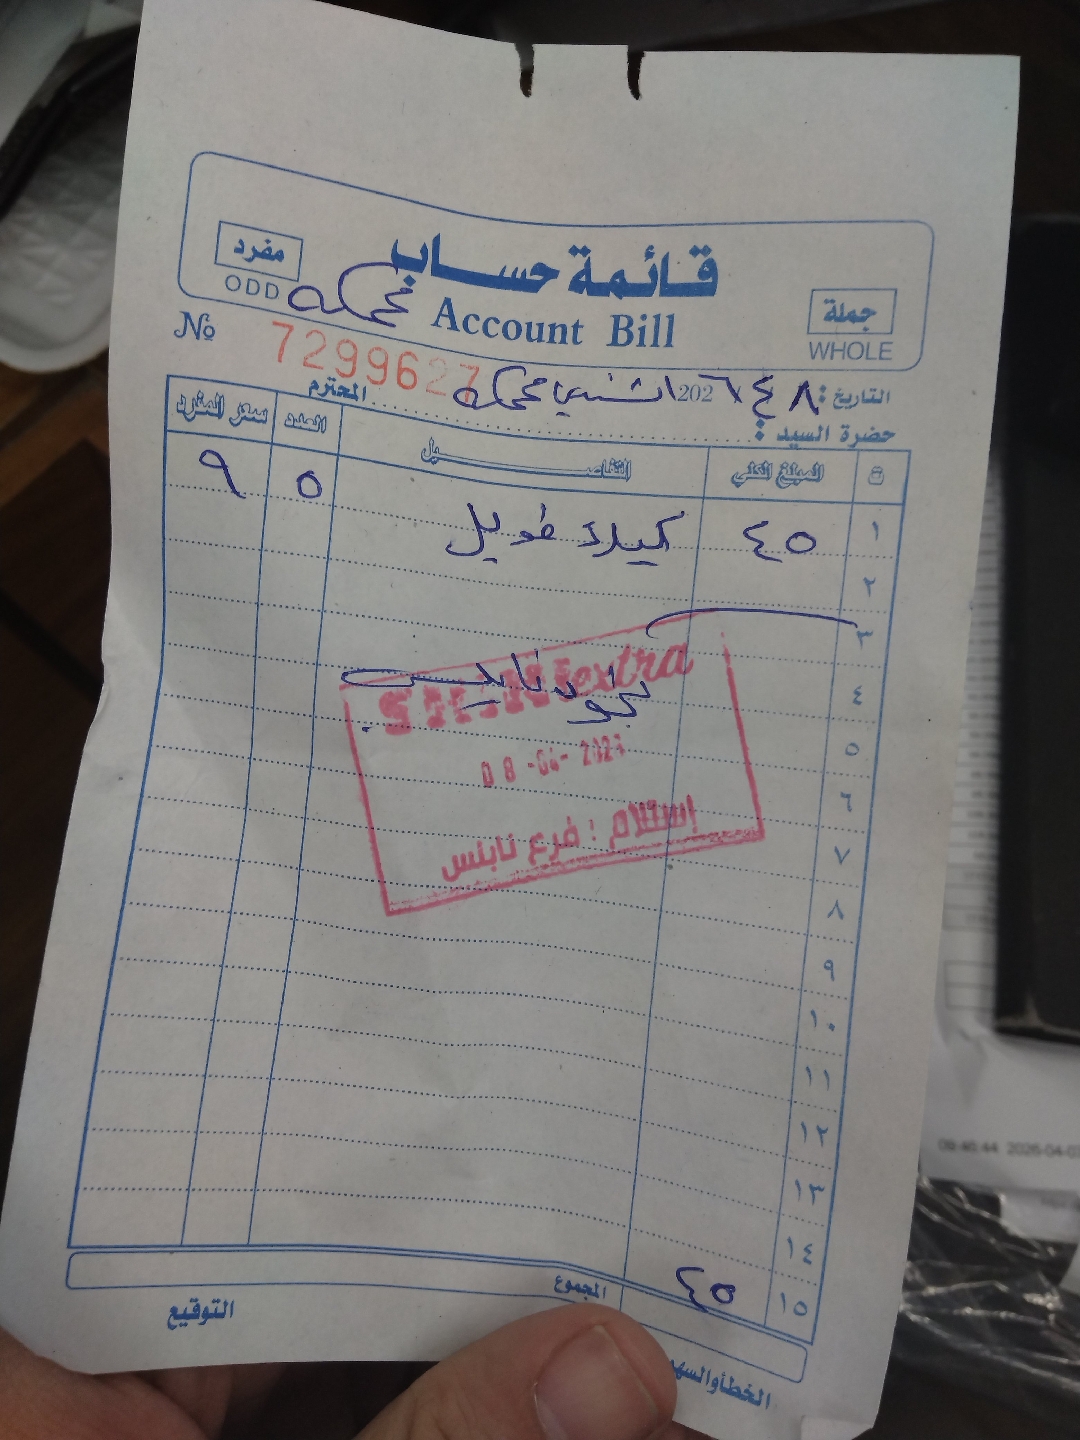 قائمة حساب
Account Bill
مفرد
ODD
جملة
WHOLE
№ 7299627
التاريخ: ٨ ٤ 202٦
حضرة السيد : المحترم
ت المبلغ الكلي التفاصيل العدد سعر المفرد
١ ٤٥ طويل ٥ ٩
٢
٣
٤
extra
٥
08-04-202
٦
إستلام : فرع نابلس
٧
٨
٩
١٠
١١
١٢
١٣
١٤
١٥ ٤٥
المجموع
التوقيع
الخطأ والسهو